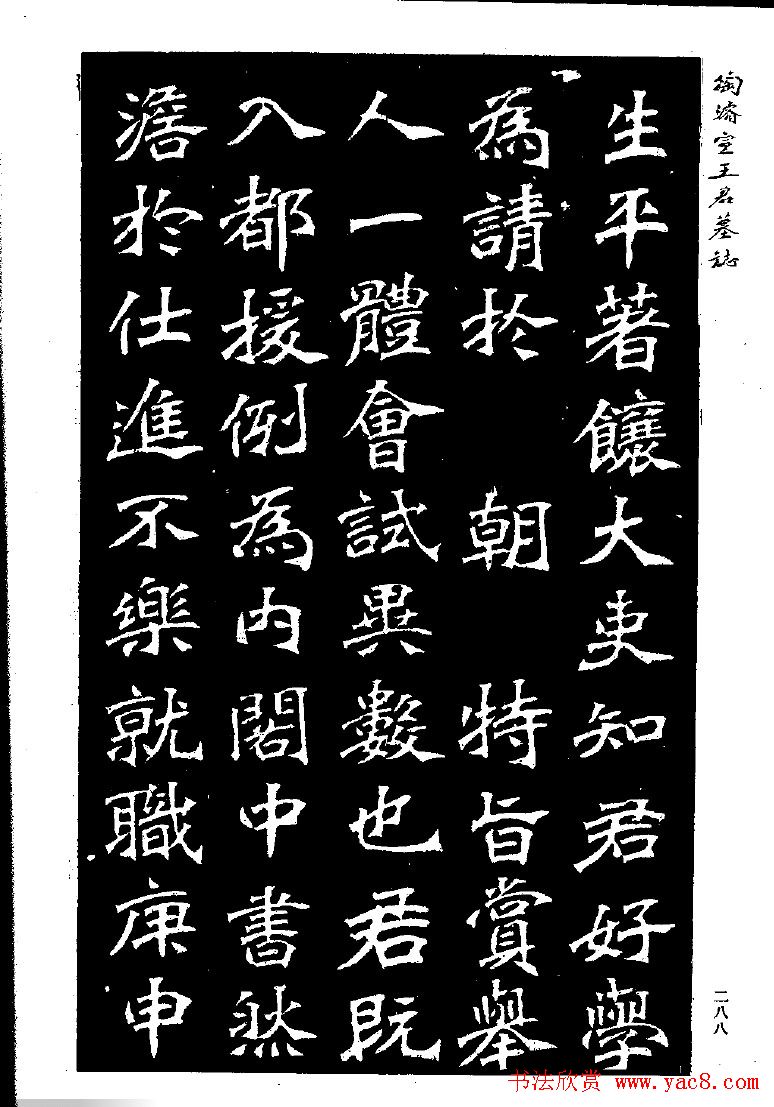 陶濬宣王君墓誌
生平著饟大吏知君好學
為請於 朝 特旨賞舉
人一體會試異數也君既
入都援例為內閣中書然
澹於仕進不樂就職庚申
二八八
书法欣赏 www.yac8.com